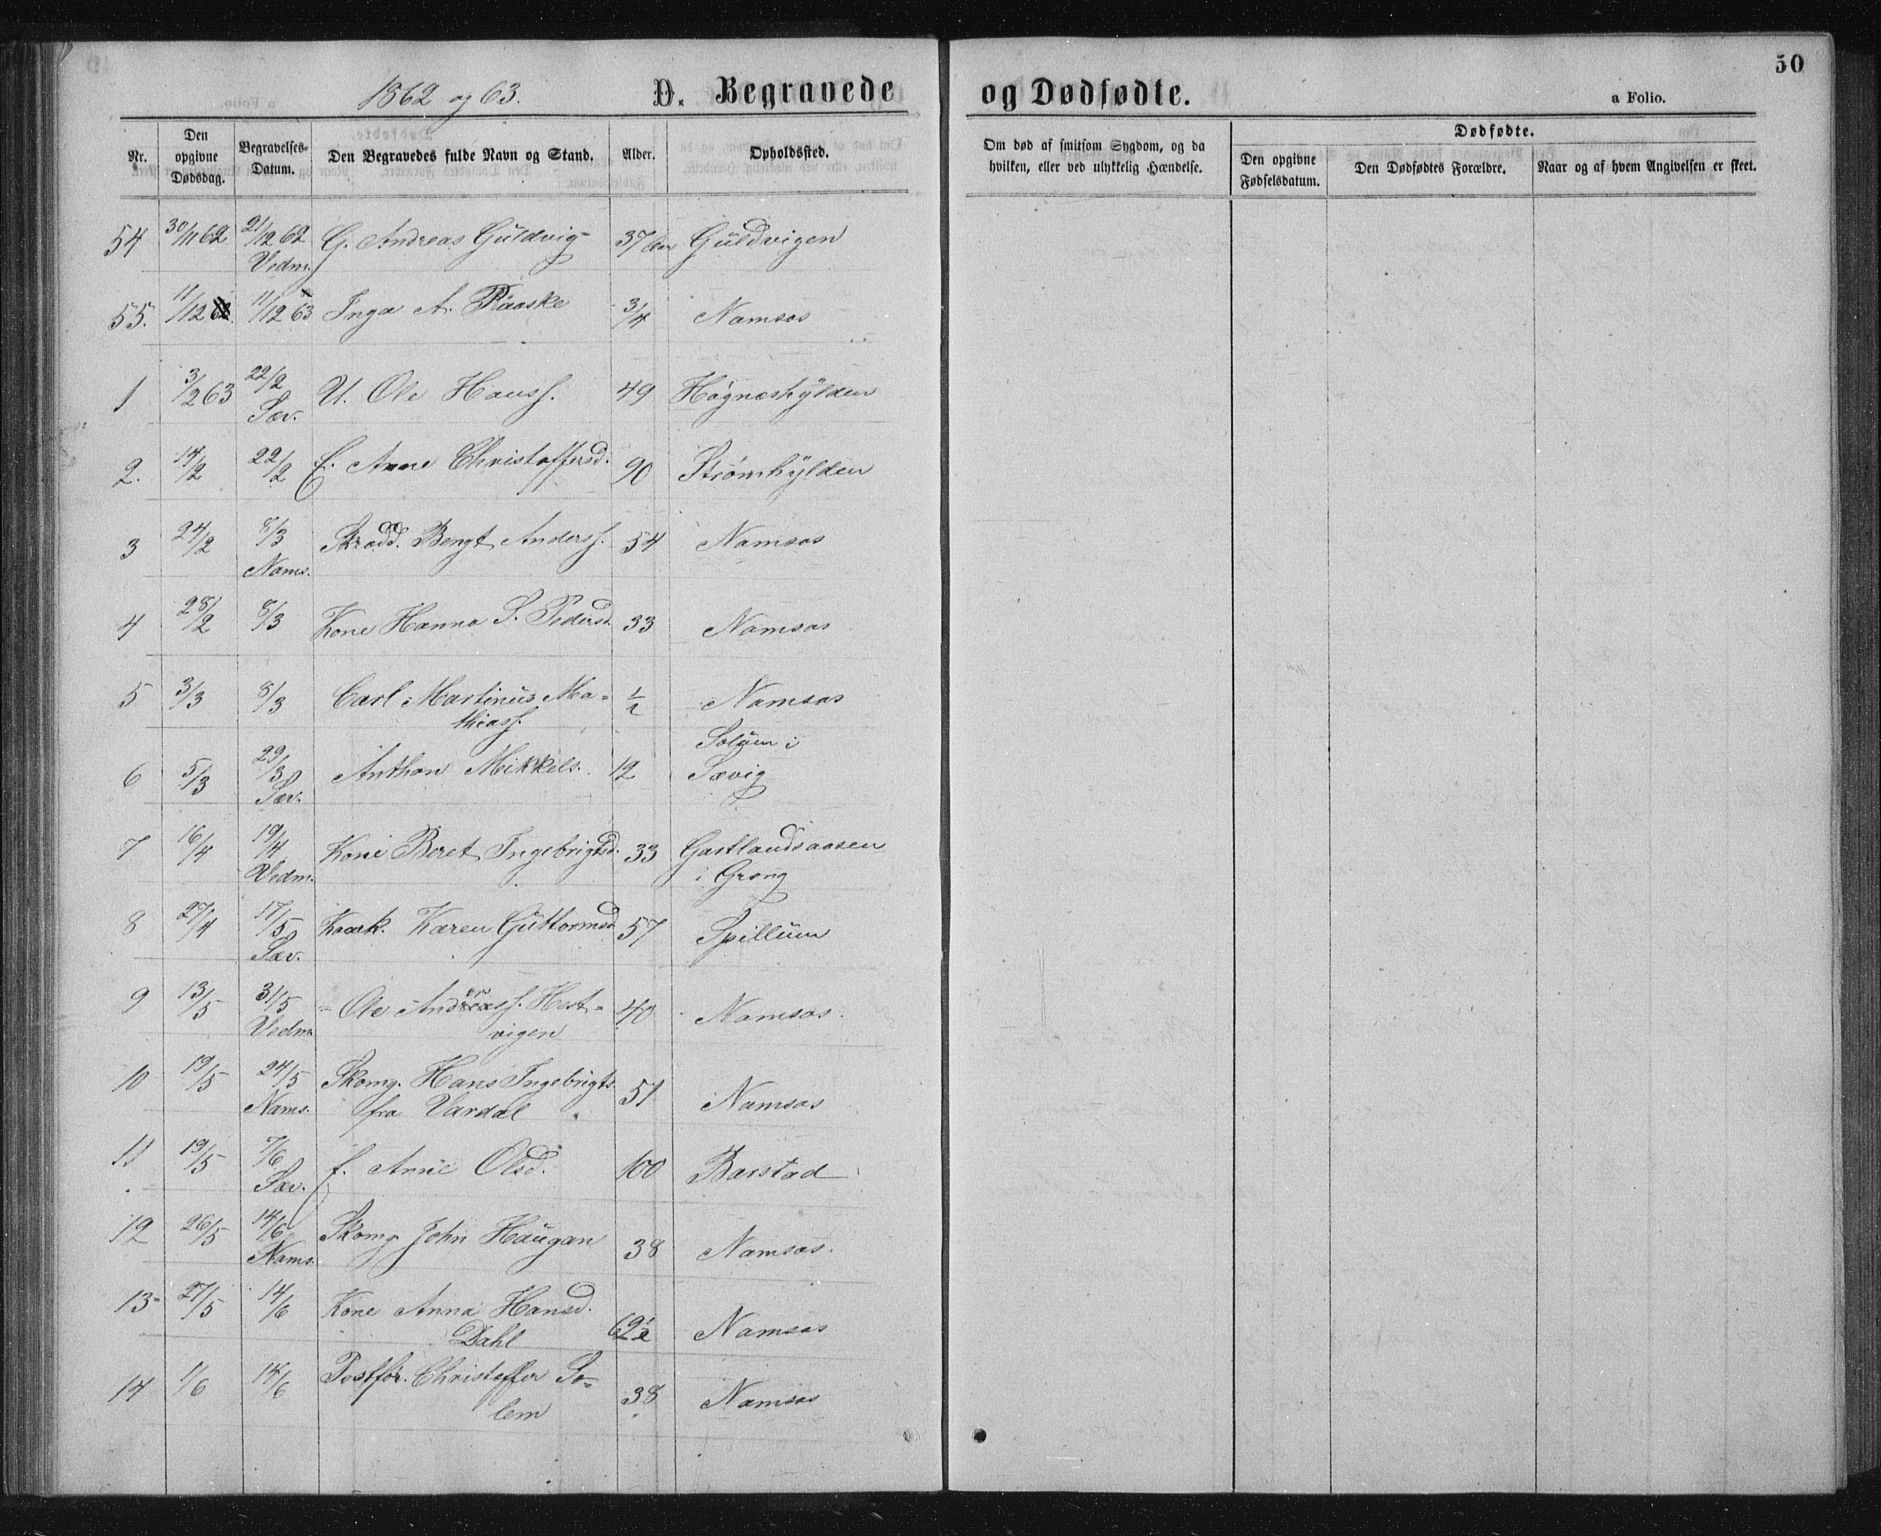 1862 og 63. D. Begravede og Dødfødte. a Folio. 50
Nr. Den opgivne Dødsdag. Begravelses-Datum. Den Begravedes fulde Navn og Stand. Alder. Opholdssted.
Om død af smitsom Sygdom, og da hvilken, eller ved ulykkelig Hændelse.
Dødfødte.
Den opgivne Fødselsdatum. Den Dødfødtes Forældre. Naar og af hvem Angivelsen er skeet.
54 30/11 62 21/12 62 G. Andreas Guldvig 37 Aar Guldvigen
Vedm.
55. 11/12 11/12 63 Inga A. Paaske 3/4 Namsos
1 3/2 63 22/2 U. Ole Hanss. 49 Høgneshylden
Sæv.
2. 14/2 22/2 f. Anne Christoffersd. 90 Strømhylden
3 24/2 8/3 Skrædd. Bengt Anderss. 54 Namsos
Nams.
4 28/2 8/3 Kone Hanna S. Pedersd. 33 Namsos
5 3/3 8/3 Carl Martinus Ma- 1/2 Namsos
thiass.
Solum i
6 5/3 29/3 Anthon Mikkels. 12 Sævig
Sæv.
7 16/4 19/4 Kone Beret Ingebrigtsd. 33 Gartlandsaasen
Vedm. i Grong
8 27/4 17/5 Kaark. Karen Guttormsd. 57 Spillum
Sæv.
9 13/5 31/5 Ole Anderss. Hest- 40 Namsos.
Vedm. vigen
10 19/5 24/5 Skomg. Hans Ingebrigts. 51 Namsos
Nams. fra Værdal
11 19/5 7/6 f. Anne Olsd. 100 Barstad
Sæv.
12 26/5 14/6 Skomg. John Haugan 38 Namsos.
Nams.
13 27/5 14/6 Kone Anna Hansd. 69 1/2 Namsos
Dahl
14 1/6 14/6 Postfør. Christoffer So- 38 Namsos
lem